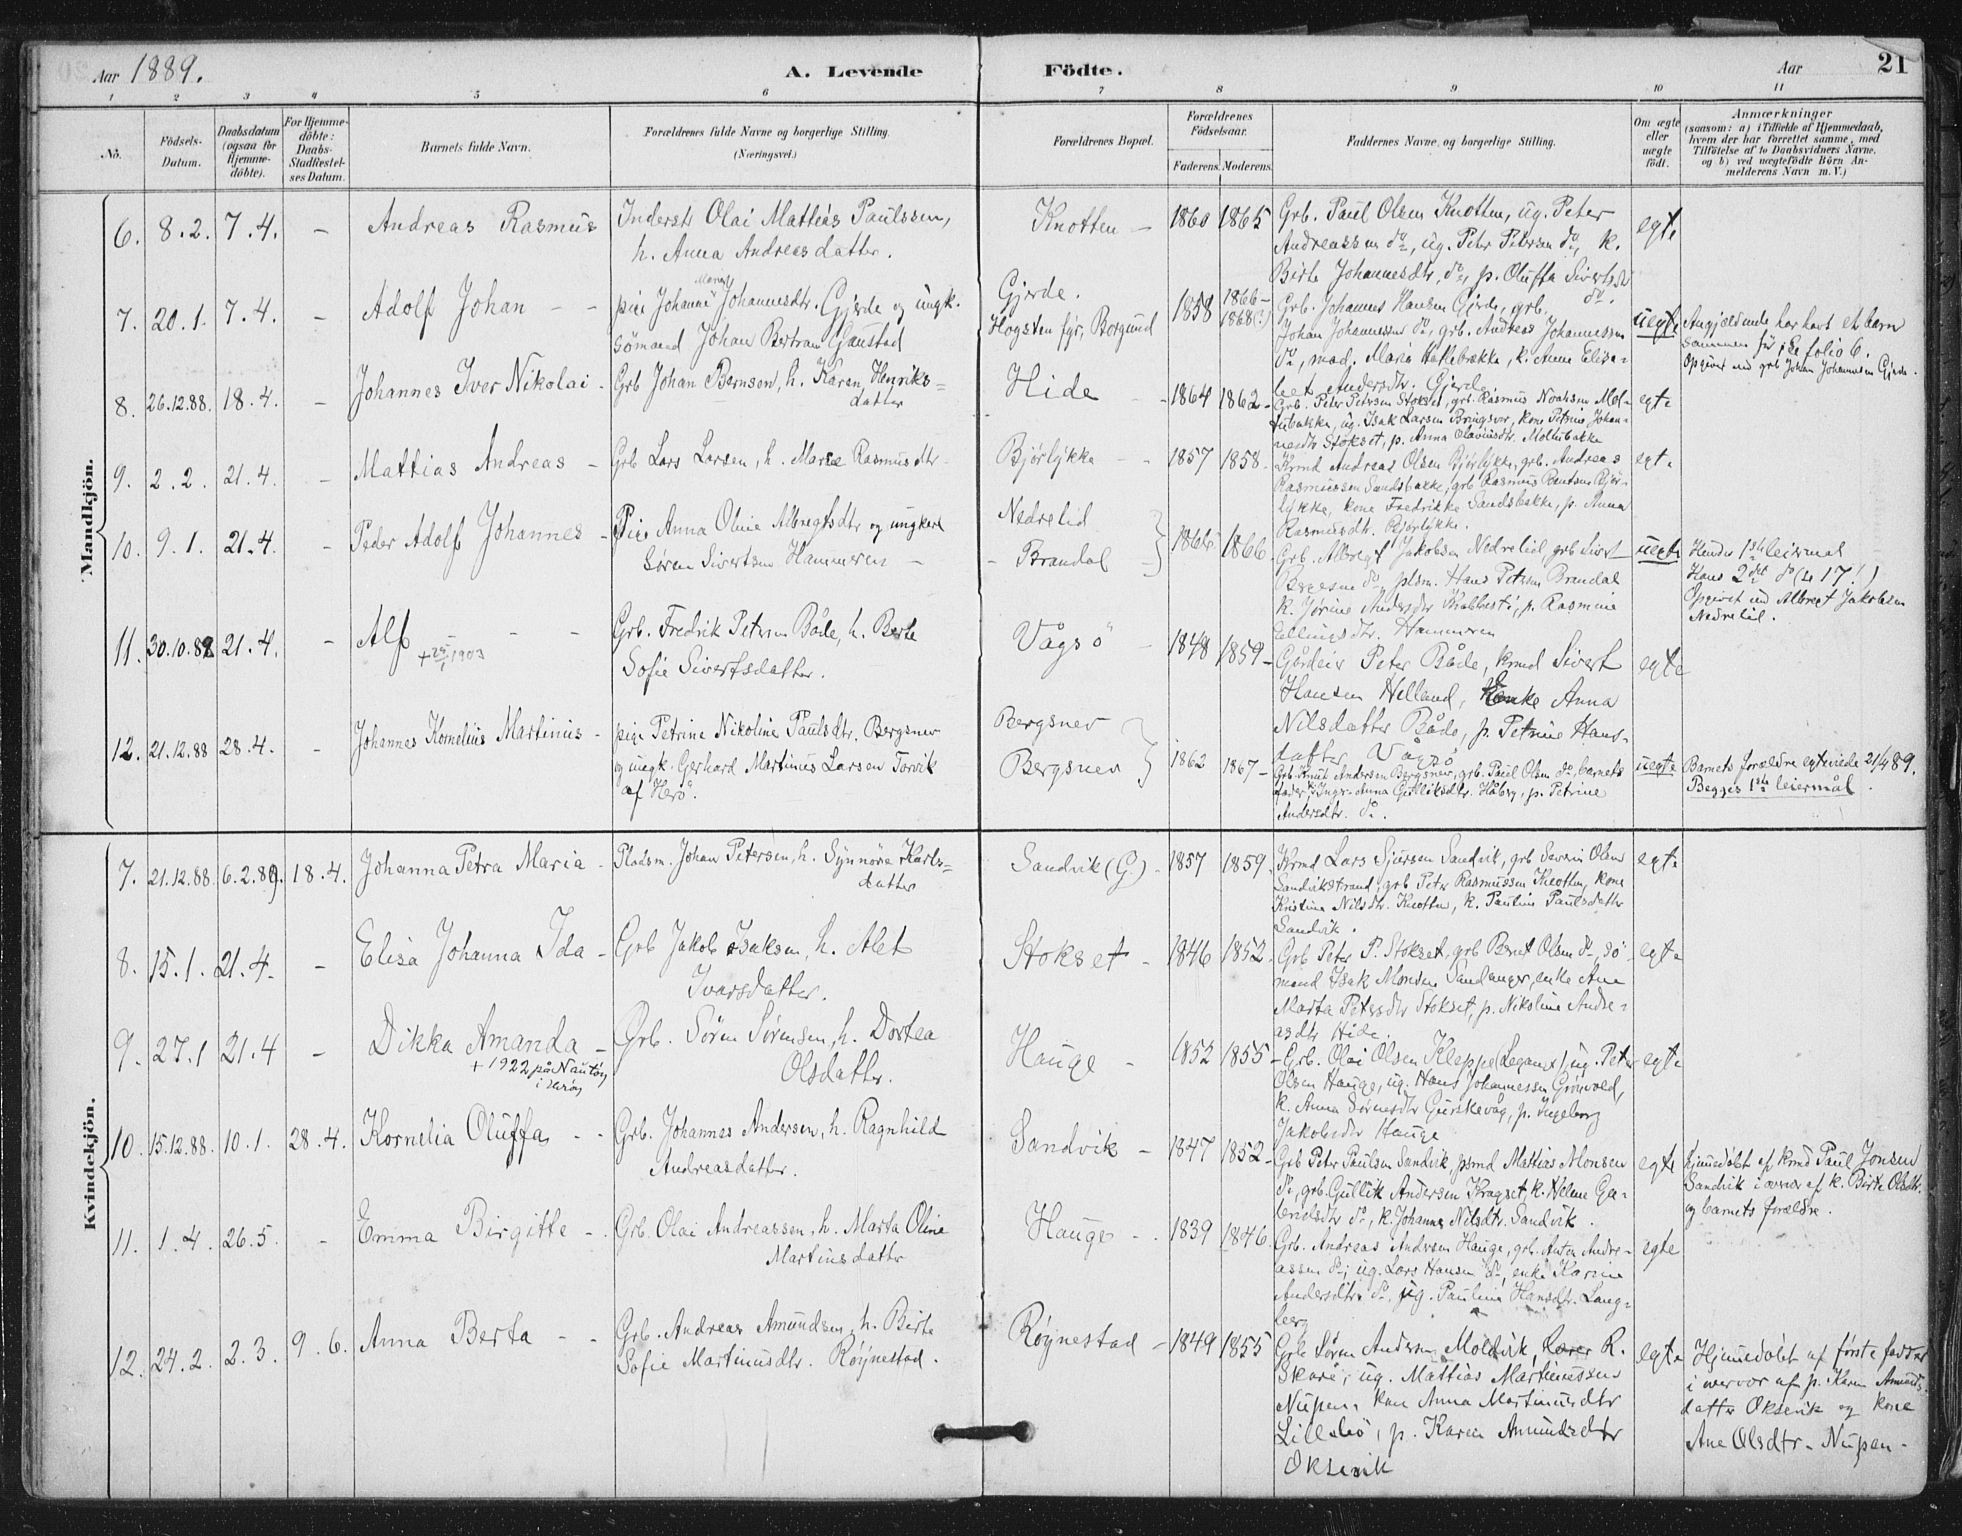 Aar 1889.
A. Levende Födte.
Aar
21
1 2 3 4 5 6 7 8 9 10 11
No.
Födsels-Datum.
Daabsdatum (ogsaa for Hjemme-döbte).
For Hjemme-döbte: Daabs-Stadfestel-ses Datum.
Barnets fulde Navn.
Forældrenes fulde Navne og borgerlige Stilling.
(Næringsvei.)
Forældrenes Bopæl.
Forældrenes Födselsaar.
Faderens. Moderens.
Faddernes Navne, og borgerlige Stilling.
Om ægte eller uægte födt.
Anmærkninger
(saasom: a) i Tilfælde af Hjemmedaab, hvem der har forrettet samme, med Tilföielse af to Daabsvidners Navne, og b) ved uægtefödte Börn Anmelderens Navn m. V.)
Mandkjön.
6. 8.2. 7.4. – Andreas Rasmus
Inderst Olai Mattias Paulssen,
h. Anna Andreasdatter.
Knotten – 1860 1865
Grb. Paul Olsen Knotten, ug. Peter
Andreassen do, ug. Peter Petersen do, k.
Birte Johannesdtr. do, p. Oluffa Sivertsdtr
do.
egte
7. 20.1. 7.4. – Adolf Johan – –
pige Johanne Johannesdtr. Gjerde og ungk.
sömand Johan Bertram Ganstad
Gjerde.
Hogsten fyr, Borgund
1858 1866–
1868(?)
Grb. Johannes Hansen Gjerde, grb.
Johan Johannessen do, grb. Andreas Johannessen
do, mad. Maria Hakkebakke, k. Anne Elisa-
bet Andersdtr. Gjerde
uegte
Angjældende har havt et barn
sammen för, se folio 6.
Opgivet ved grb. Johan Johannesen Gjerde.
8. 26.12.88. 18.4. – Johannes Iver Nikolai –
Grb Johan Bernsen, h. Karen Henriks-
datter
Hide – 1864 1862–
Grb. Peter Petersen Stokset, grb. Rasmus Noahsen Mol-
tubakke, ug. Isak Larsen Bringsvor, kone Petrine Johan-
nesdtr Stokset, p. Anna Olavinsdtr. Moltubakke
egte
9. 2.2. 21.4. – Mattias Andreas –
Grb Lars Larsen, h. Marie Rasmusdtr
Bjørlykke – 1857 1858.
Krmd Andreas Olsen Bjørlykke, grb. Andreas
Rasmussen Sandsbakke, grb Rasmus Bentsen Bjør-
lykke, kone Fredrikke Sandsbakke, p. Anna
Rasmusdtr. Bjørlykke.
egte
10. 9.1. 21.4. – Peder Adolf Johannes –
Pige Anna Oline Albregtsdtr og ungkarl
Søren Sivertsen Hammeren –
Nedrelid
Brandal
1866 1866
Grb. Albregt Jakobsen Nedrelid, grb Sivert
do, plsm. Hans Petersen Brandal
k. Jørine Andersdtr Krabbestö, p. Rasmine
Ellingsdtr. Hammeren
uegte
Hendes 1ste leiermål
Hans 2det do (se 17!)
Opgivet ved Albregt Jakobsen
Nedrelid.
11. 30.10.88 21.4. – Alf – –
+ 1903
Grb. Fredrik Petersen Både, h. Berte
Sofie Sivertsdatter.
Vågsö – 1848 1859–
Gårdeier Peter Både, krmd Sivert
Hansen Helland, Enke Anna
Nilsdatter Både, p. Petrine Hans-
datter Vågsö
egte
12. 21.12.88 28.4. – Johannes Kornelius Martinus –
pige Petrine Nikoline Paulsdtr. Bergsnev
og ungk. Gerhard Martinus Larsen Torvik
af Herö.
Bergsnev
Bergsnev
1862 1867–
Grb. Knut Andersen Bergsnev, grb. Paul Olsen do, barnets
fader, k. Inger-Anna Gulliksdtr. Håberg, p. Petrine
Andersdtr. do.
uegte
Barnets forældre egteviede 21/4 89.
Begges 1ste leiermål.
Kvindekjön.
7. 21.12.88. 6.2.89. 18.4. Johanna Petra Maria –
Pladsm. Johan Petersen, h. Synnöve Karls-
datter
Sandvik (G.) – 1857 1859.
Krmd Lars Sjursen Sandvik, grb Severin Olsen
Sandvikstrand, grb Peter Rasmussen Knotten, kone
Kristine Nilsdtr. Knotten, k. Pauline Paulsdatter
Sandvik.
egte
8. 15.1. 21.4. – Elisa Johanna Ida –
Grb Jakob Isaksen, h. Alet
Ivarsdatter.
Stokset – 1846 1852.
Grb Peter P. Stokset, grb Bernt Olsen do, sö-
mand Isak Monsen Sandanger, enke Ane
Marta Petersdtr Stokset, p. Nikoline Andre-
asdtr Hide.
egte
9. 27.1 21.4 – Dikka Amanda –
+ 1922 på Nautöy
i Herøy
Grb. Sören Sörensen, h. Dortea
Olsdatter.
Hauge – 1852 1855–
Grb. Olai Olsen Kleppe (Leganes), ug. Peter
Olsen Hauge, ug. Hans Johannessen Grönvold,
k. Anna Sörensdtr Gurskevåg, p. Ingeborg
Jakobsdtr Hauge
egte
10. 15.12.88. 10.1. 28.4. Kornelia Oluffa – –
Grb. Johannes Andersen, h. Ragnhild
Andreasdatter.
Sandvik – 1847 1852–
Grb Peter Paulsen Sandvik, psmd Mattias Monsen
do, grb. Gullik Andersen Kragset, k. Helene Ga-
brielsdtr do, k. Johanne Nilsdtr. Sandvik.
egte
Hjemmedøbt af krmd Paul Jonsen
Sandvik i overvær af k. Birte Olsdtr.
og barnets forældre.
11. 1.4. 26.5. – Emma Birgitte – –
Grb. Olai Andreassen, h. Marta Oline
Martinsdatter
Hauge – 1839 1846.
Grb. Andreas Andersen Hauge, grb. Anton Andre-
assen do, ug. Lars Hansen do, enke Karine
Andersdtr do, ug. Pauline Hansdtr. Lang-
berg
egte
12. 24.2. 2.3. 9.6. Anna Berta – –
Grb. Andreas Amundsen, h. Birte
Sofie Martinusdtr. Røynestad.
Røynestad – 1849 1855
Grb Søren Andersen Moldvik, R.
Skare, ug. Mattias Martinussen
Nupen, kone Anna Martinusdtr
Lillebö, p. Karen Amundsdtr
Oksevik
egte
Hjemmedøbt af første fadder
i overvær af p. Karen Amunds-
datter Oksevik og kone
Ane Olsdtr. Nupen.